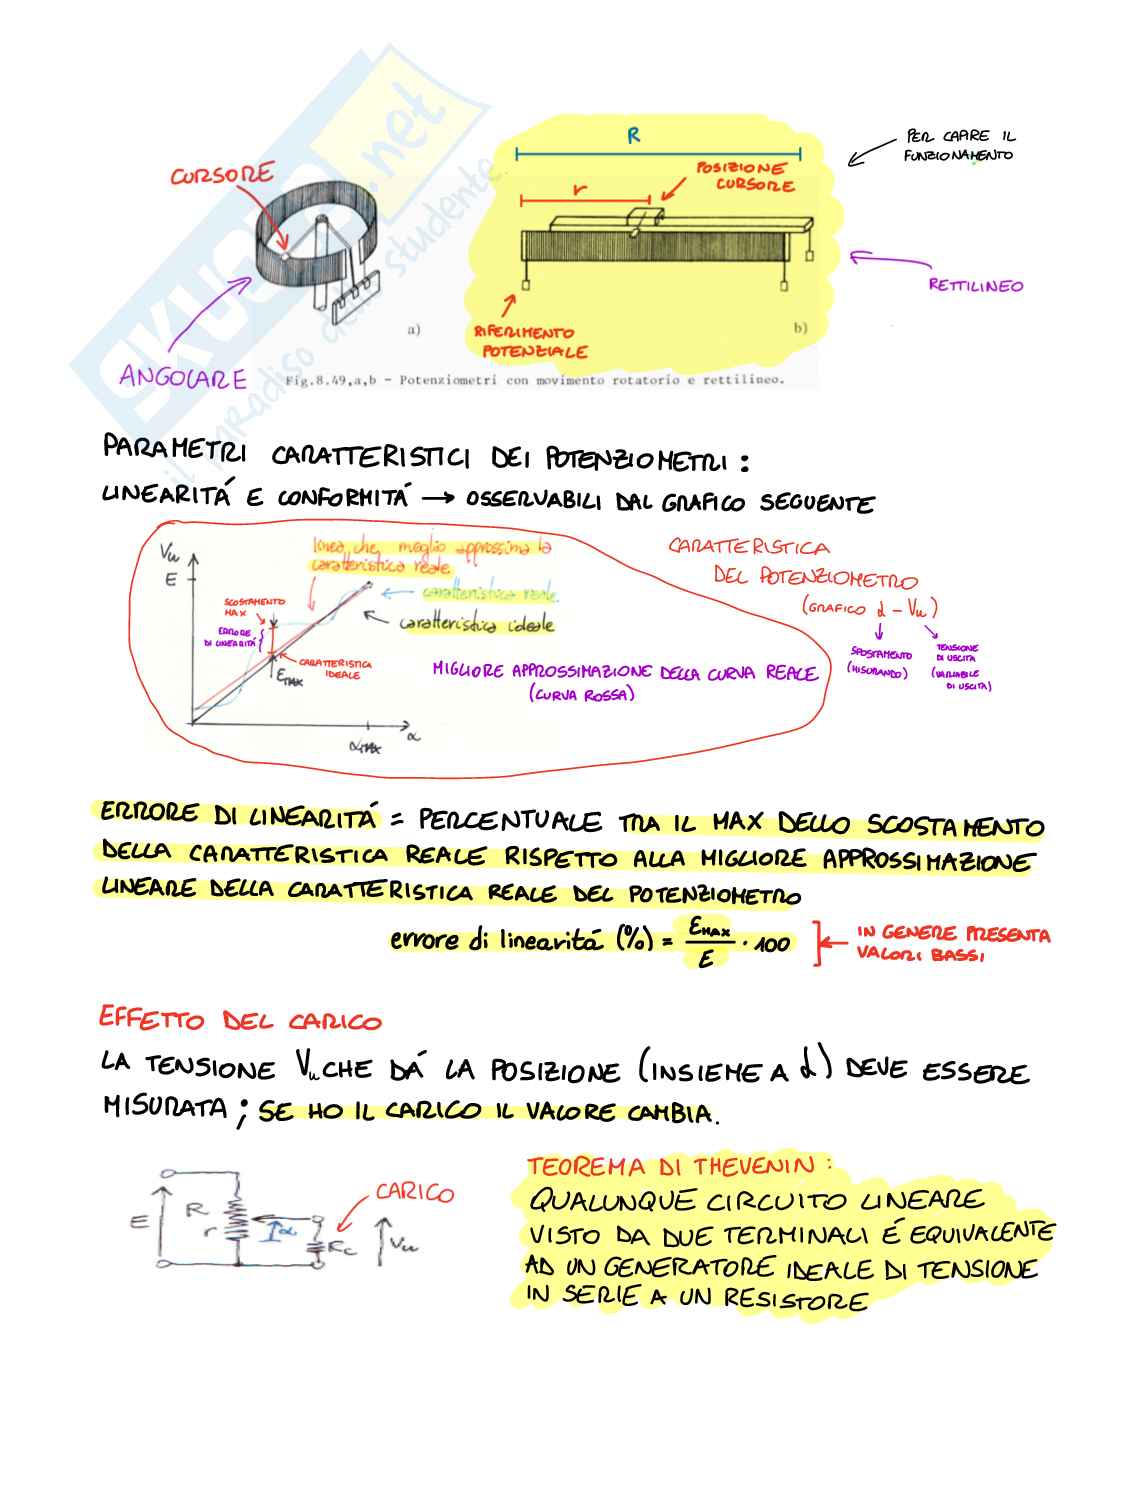 SKUOLA.net
il paradiso dello studente
R
PER CAPIRE IL
FUNZIONAMENTO
CURSORE
POSIZIONE
CURSORE
r
RETTILINEO
RIFERIMENTO
POTENZIALE
a)
b)
ANGOLARE
Fig.8.49,a,b - Potenziometri con movimento rotatorio e rettilineo.
PARAMETRI CARATTERISTICI DEI POTENZIOMETRI:
LINEARITÁ E CONFORMITÁ → OSSERVABILI DAL GRAFICO SEGUENTE
Vu
E
linea che meglio approssima la
caratteristica reale
caratteristica reale
caratteristica ideale
SCOSTAMENTO
MAX
ERRORE
DI LINEARITÁ
CARATTERISTICA
IDEALE
EMAX
αMAX
α
MIGLIORE APPROSSIMAZIONE DELLA CURVA REALE
(CURVA ROSSA)
CARATTERISTICA
DEL POTENZIOMETRO
(GRAFICO α - Vu)
SPOSTAMENTO
(MISURANDO)
TENSIONE
DI USCITA
(VARIABILE
DI USCITA)
ERRORE DI LINEARITÁ = PERCENTUALE TRA IL MAX DELLO SCOSTAMENTO
DELLA CARATTERISTICA REALE RISPETTO ALLA MIGLIORE APPROSSIMAZIONE
LINEARE DELLA CARATTERISTICA REALE DEL POTENZIOMETRO
errore di linearitá (%) = EMAX / E · 100
IN GENERE PRESENTA
VALORI BASSI
EFFETTO DEL CARICO
LA TENSIONE Vu CHE DÁ LA POSIZIONE (INSIEME A α) DEVE ESSERE
MISURATA; SE HO IL CARICO IL VALORE CAMBIA.
E
R
r
α
Rc
CARICO
Vu
TEOREMA DI THEVENIN:
QUALUNQUE CIRCUITO LINEARE
VISTO DA DUE TERMINALI É EQUIVALENTE
AD UN GENERATORE IDEALE DI TENSIONE
IN SERIE A UN RESISTORE